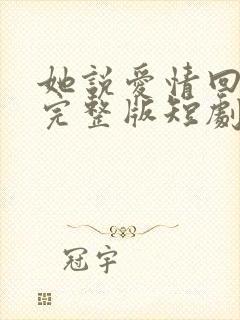 她説愛情回
完整版短劇
冠宇